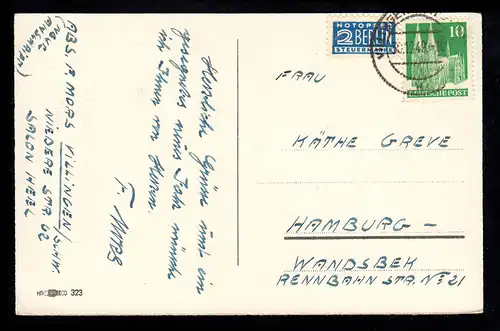 ABS. P. MORS VILLINGEN/SCHW.
(NEUE
ANSCHRIFT)
NIEDERE STR 62
SALON HEBEL
Herzliche Grüße und ein
gesegnetes neues Jahr wünscht
von Herzen.
P. MORS
NOTOPFER
2 BERLIN
STEUERMARKE
10
DEUTSCHE POST
FRAU
KÄTHE GREVE
HAMBURG –
WANDSBEK
RENNBAHN STR. No 21
323